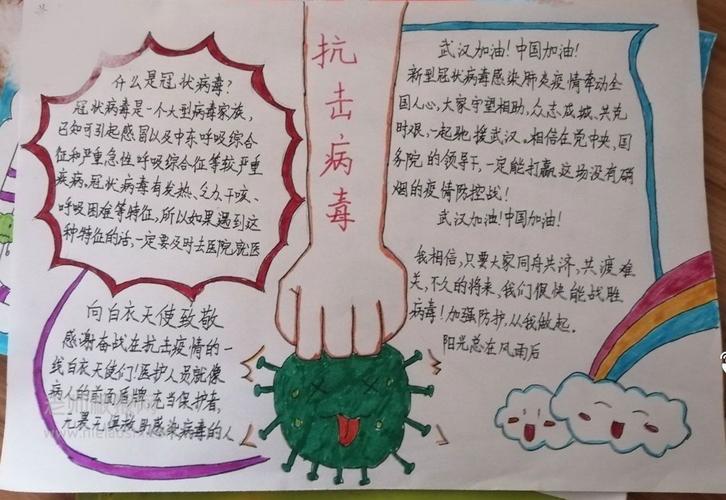 抗击病毒
什么是冠状病毒?
冠状病毒是一个大型病毒家族,
已知可引起感冒以及中东呼吸综合
征和严重急性呼吸综合征等较严重
疾病。冠状病毒有发热、乏力、干咳、
呼吸困难等特征,所以如果遇到这
种特征的话,一定要及时去医院就医
向白衣天使致敬
感谢奋战在抗击疫情的一
线白衣天使们!医护人员就像
病人的前面盾牌,充当保护者,
救助感染病毒的人
武汉加油!中国加油!
新型冠状病毒感染肺炎疫情牵动全
国人心,大家守望相助、众志成城、共克
时艰,一起驰援武汉。相信在党中央,国
务院的领导下,一定能打赢这场没有硝
烟的疫情防控战!
武汉加油!中国加油!
我相信,只要大家同舟共济,共渡难
关,不久的将来,我们很快能战胜
病毒!加强防护,从我做起。
阳光总在风雨后